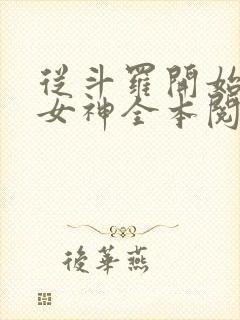 從斗羅開始
女神全本閱
後華燕